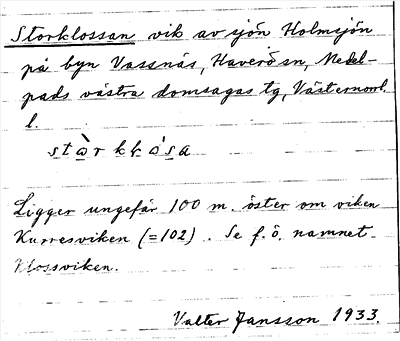 Storklossan vik av sjön Holmsjön
på byn Vassnäs, Haverö sn, Medel-
pads västra domsagas tg, Västernorrl.
l.
stɷ̀r kḷɷ́sa
Ligger ungefär 100 m. öster om viken
Kurresviken (=102). Se f. ö. namnet
Klossviken.
Valter Jansson 1933.